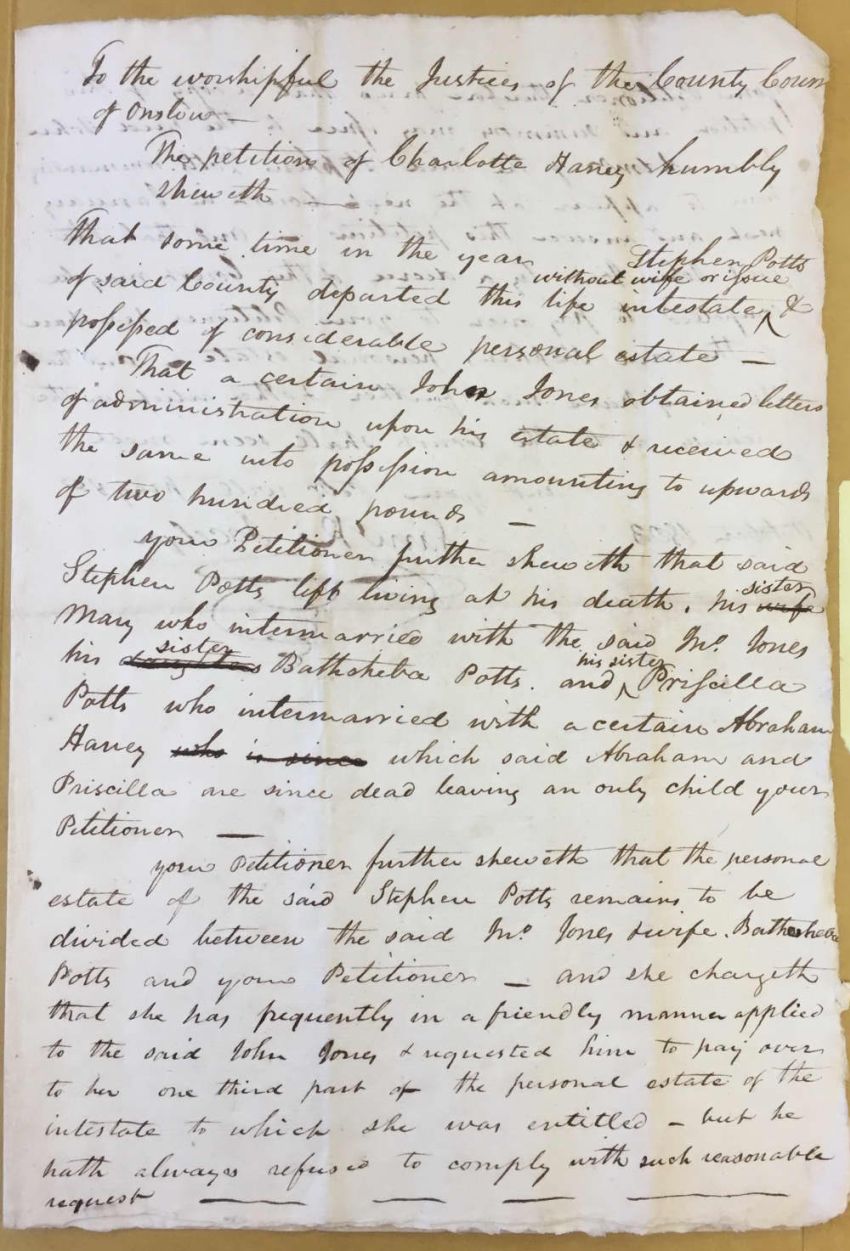 To the worshipful the Justices of the County Court
of Onslow —
The petition of Charlotte Haney humbly
sheweth —
That some time in the year Stephen Potts
of said County departed this life intestate, without wife or issue &
possessed of considerable personal estate —
That a certain John Jones obtained letters
of administration upon his estate & received
the same into possession amounting to upwards
of two hundred pounds —
your Petitioner further sheweth that said
Stephen Potts left living at his death, his wife sister
Mary who intermarried with the said Jno. Jones
his daughters sister Bathsheba Potts. and his sister Priscilla
Potts who intermarried with a certain Abraham
Haney who is since which said Abraham and
Priscilla are since dead leaving an only child your
Petitioner —
your Petitioner further sheweth that the personal
estate of the said Stephen Potts remains to be
divided between the said Jno Jones & wife. Bathsheba
Potts and your Petitioner — and she chargeth
that she has frequently in a friendly manner applied
to the said John Jones & requested him to pay over
to her one third part of the personal estate of the
intestate to which she was entitled — but he
hath always refused to comply with such reasonable
request — — — —